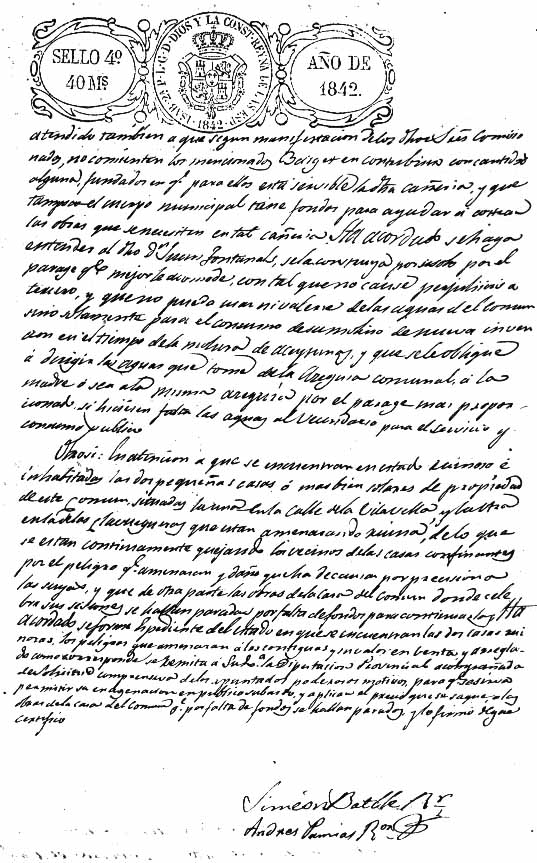 SELLO 4º
40 Ms
ISAB. 2ª P. L. G. D. DIOS Y LA CONST. REYNA DE LAS ESP.
1842
AÑO DE
1842.
atendido tambien a que segun manifestacion de los dhos Señs Comisio
nados, no consienten los mencionados en contribuir con cantidad
alguna, fundados en qe para ellos está servible la dha cañeria, y que
tampoco el cuerpo municipal tiene fondos para ayudar á costear
las obras que se necesiten en tal cañeria Ha acordado se haga
entender al dho Dn Juan Fontanals, se la construya por solo por el
parage qe mejor le acomode, con tal que no cause perjuhicio a
tercero, y que no pueda usar ni valerse de las aguas del Comun
sino solamente para el consumo de su molino de nueva inven
cion en el tiempo de la molura de aceytunas, y que se le obligue
á dirigir las aguas que tome de la Azequia comunal, á la
madre ó sea a la misma azequia por el parage mas propor
cionado, si hiciesen falta las aguas al Vecindario para el servicio y
consumo publico
Otrosi: En atencion a que se encuentran en estado ruinoso é
inhabitadas las dos pequeñas casas ó mas bien solares de propiedad
de este comun, situadas la una en la calle de la Viavella y la otra
en la de las que estan amenazando ruina, de lo que
se estan continuamente quejando los vecinos de las casas confinantes
por el peligro qe amenazan y daño que ha de causar por precision a
las suyas, y que de otra parte las obras de la casa del comun donde cele
bra sus sesiones se hallan paradas por falta de fondos para continuarlas, Ha
acordado se forme Espediente del estado en que se encuentran las dos casas rui
nosas, los peligros que amenazan á las contiguas y su valor en venta, y arregla
do como corresponde se remita á la Diputacion Provincial acompañada
de solicitud comprensiva de los apuntados poderosos motivos, para qe se sirva
permitir su enagenacion en publico subasto, y aplicar el precio que se saque a las
obras de la casa del Comun qe por falta de fondos se hallan paradas, y lo firmó de que
certifico
Simeon Batlle Rr
Andres Pamias Ron